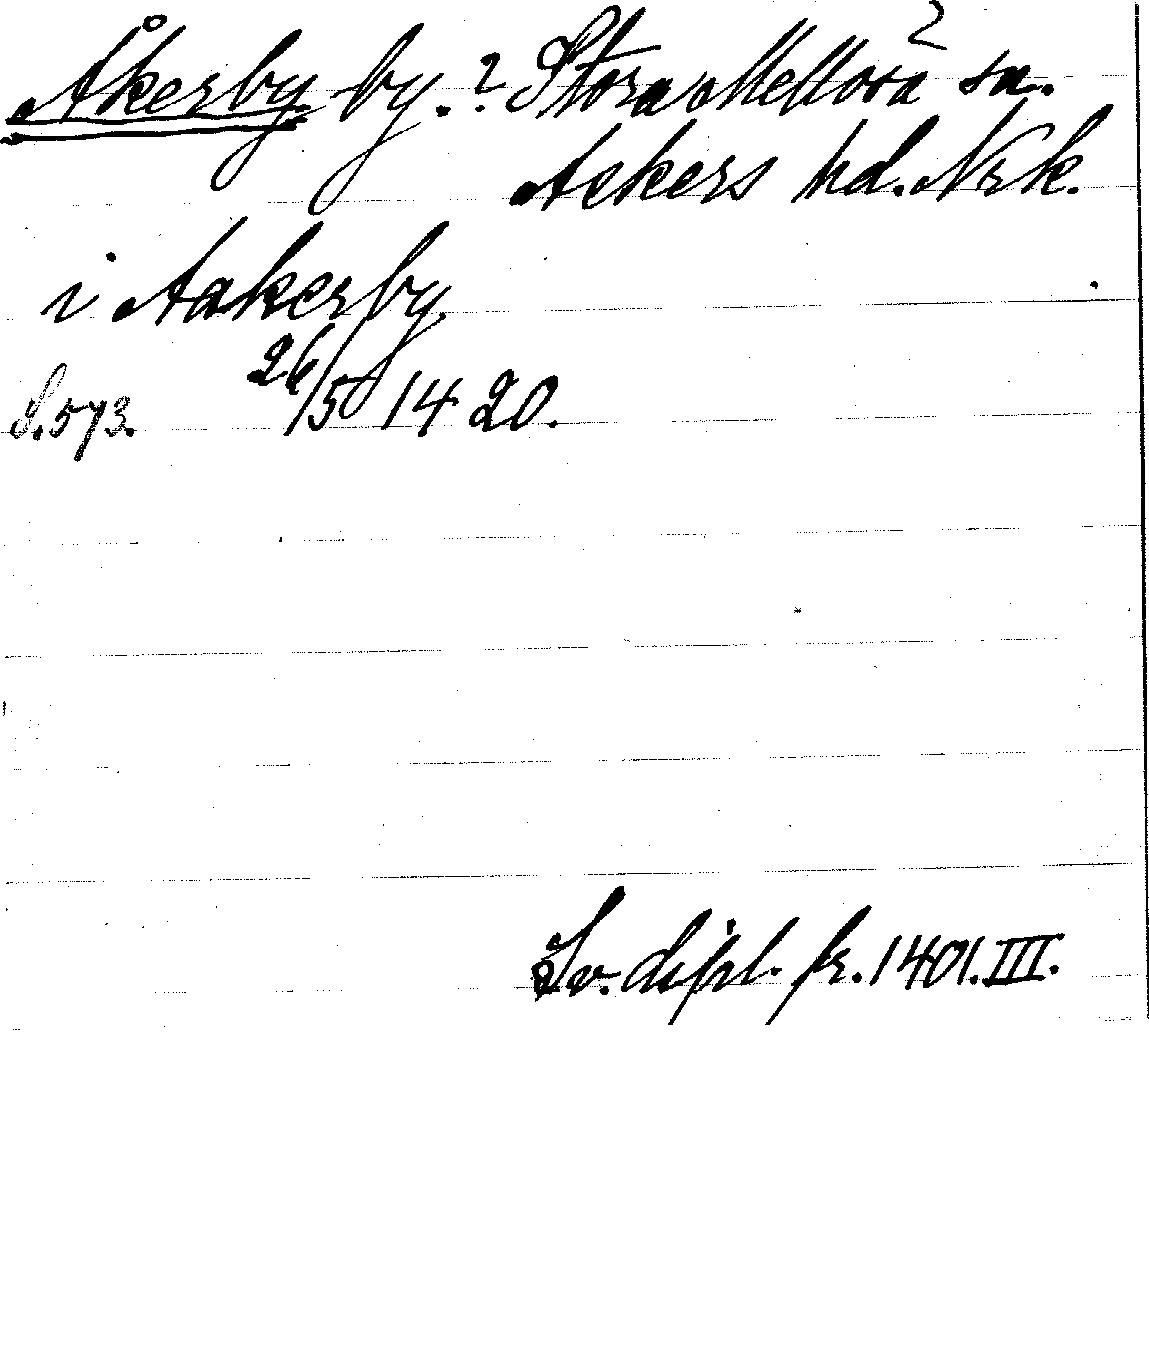 Åkerby by.? Stora Mellösa sn.
Askers hd. Nrk.
i Aakerby
S. 573. 26/5 1420.
Sv. dipl. fr. 1401. III.